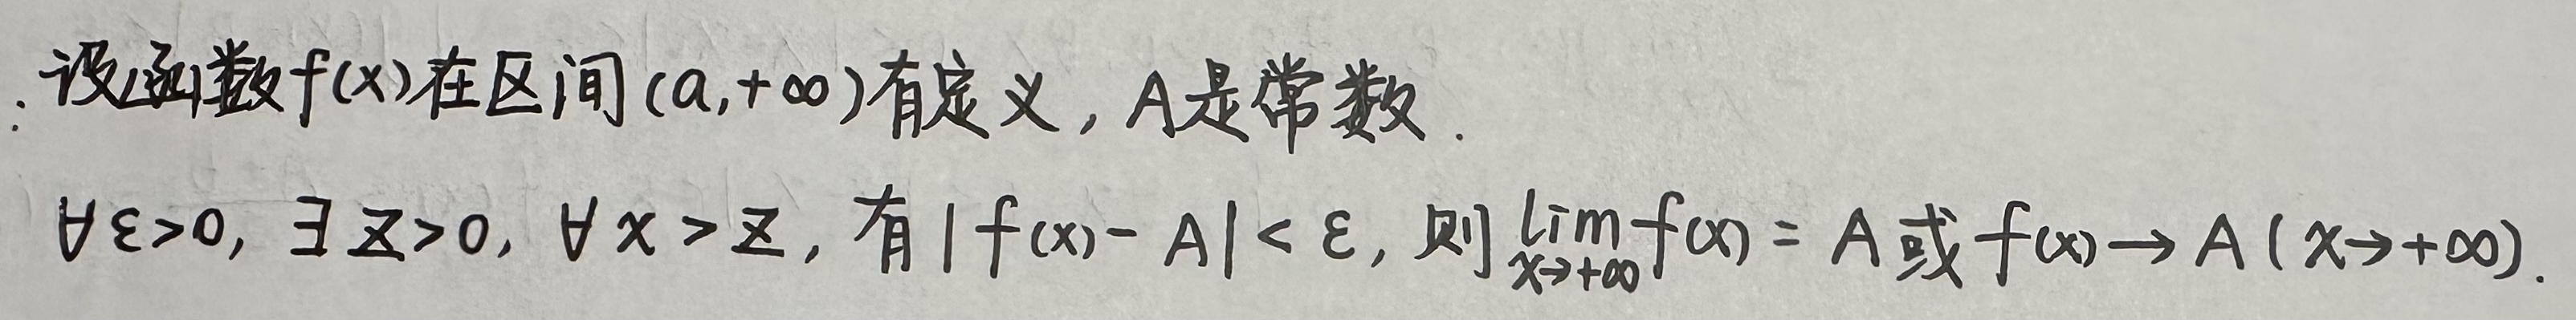 设函数f(x)在区间(a,+∞)有定义, A是常数.
∀ε>0, ∃Z>0, ∀x>Z, 有|f(x)-A|<ε, 则lim_{x→+∞}f(x)=A或f(x)→A(x→+∞).